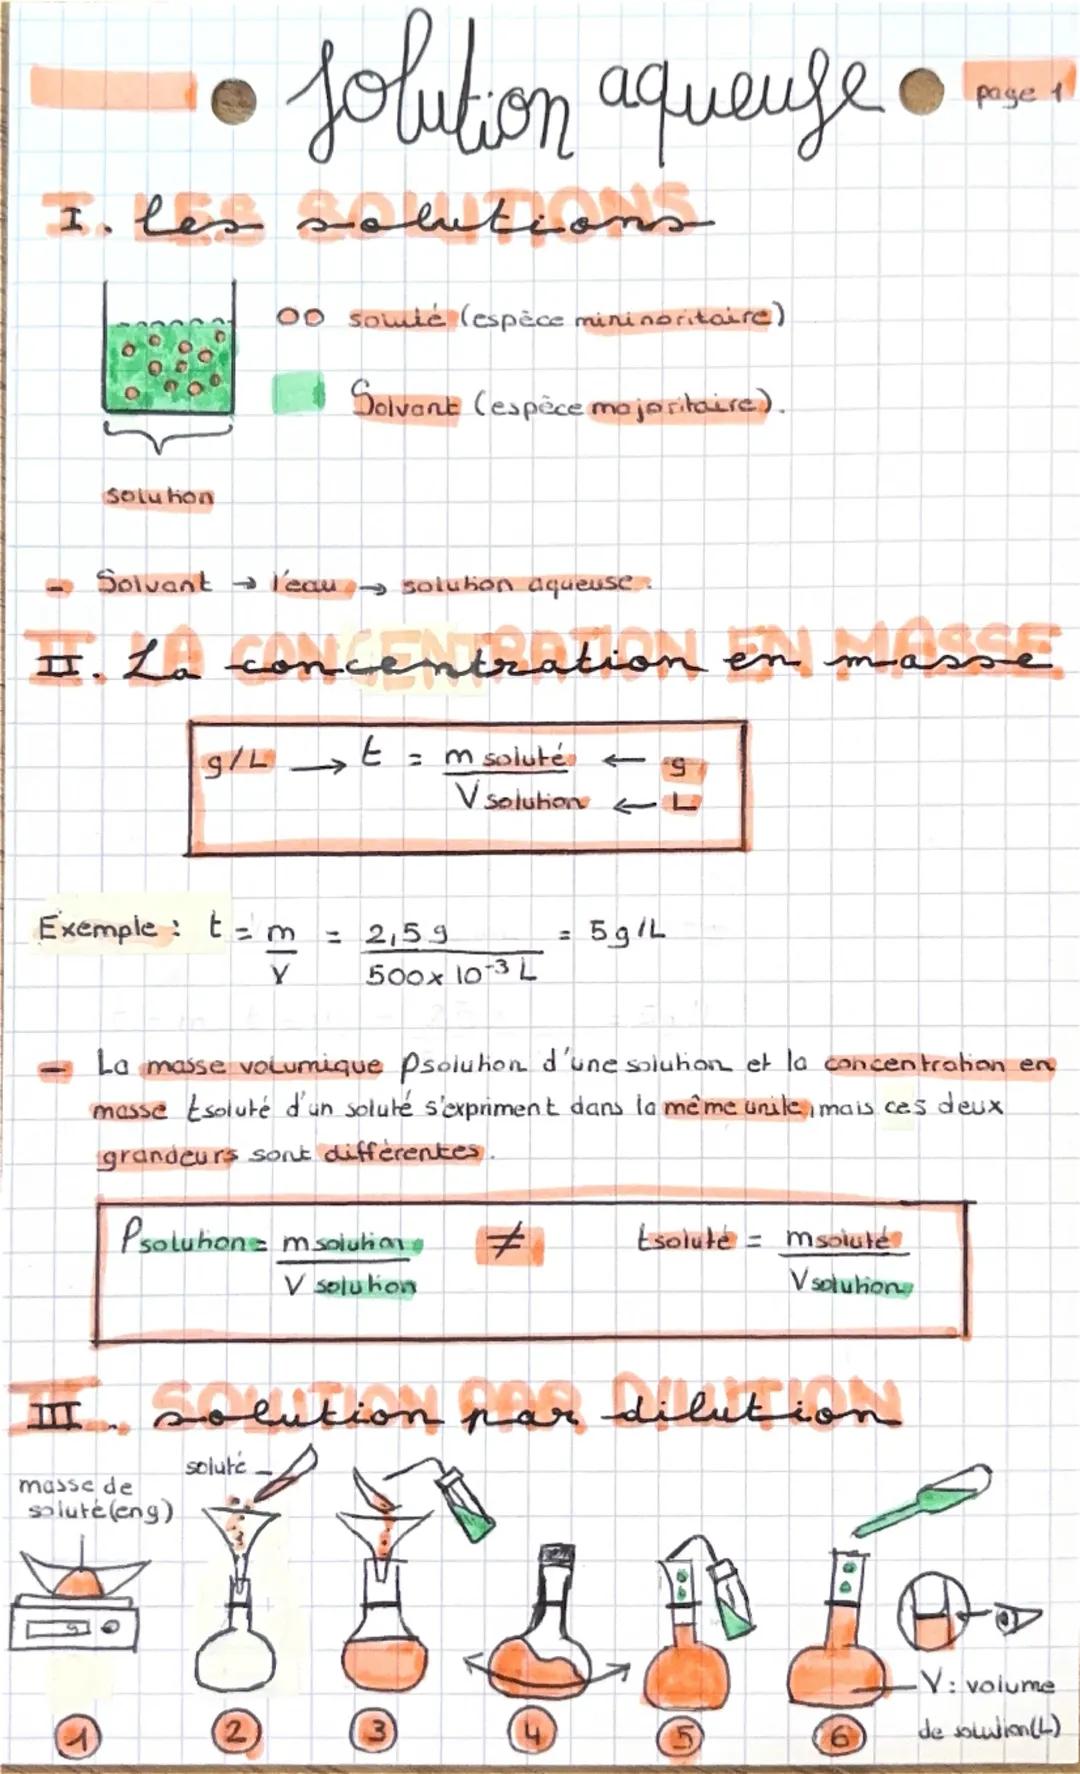 Solution aqueuse
page 1
I. Les solutions
soluté (espèce mininoritaire)
Solvant (espèce majoritaire).
solution
- Solvant → l'eau → solution aqueuse.
II. La concentration en masse
g/L → t = m soluté ← g
V solution ← L
Exemple : t = m = 2,5 g = 5g/L
V 500 x 10-3 L
- La masse volumique ρsolution d'une solution et la concentration en
masse tsoluté d'un soluté s'expriment dans la même unité, mais ces deux
grandeurs sont différentes.
ρsolution = m solution ≠ tsoluté = m soluté
V solution V solution
III. solution par dilution
masse de
soluté (en g)
soluté
1 2 3 4 5 6
V : volume
de solution (L)